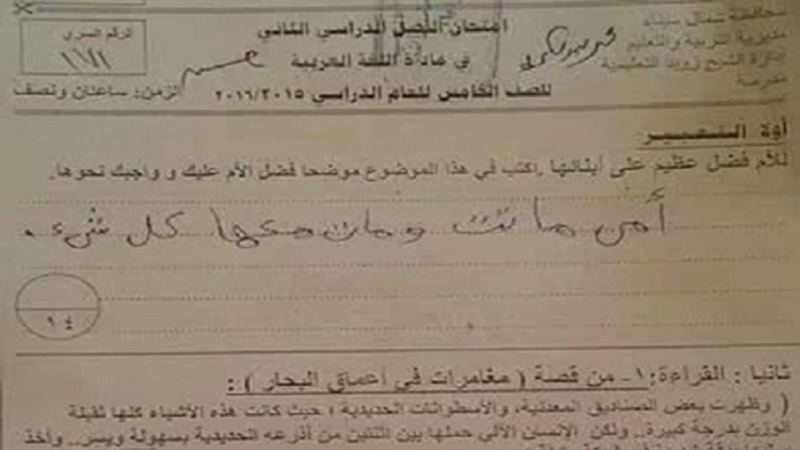 محافظة شمال سيناء
مديرية التربية والتعليم
إدارة الشيخ زويد التعليمية
مدرسة
امتحان الفصل الدراسي الثاني
في مادة اللغة العربية
للصف الخامس للعام الدراسي ٢٠١٦/٢٠١٥
الرقم السري
الزمن: ساعتان ونصف
أولا التعبير
للأم فضل عظيم على أبنائها .اكتب في هذا الموضوع موضحا فضل الأم عليك و واجبك نحوها.
أمي ماتت ومات معها كل شيء .
١٤
ثانيا : القراءة: ١- من قصة ( مغامرات في أعماق البحار ) :
( وظهرت بعض الصناديق المعدنية، والأسطوانات الحديدية ؛ حيث كانت هذه الأشياء كلها ثقيلة
الوزن بدرجة كبيرة.. ولكن الإنسان الآلي حملها بين اثنتين من أذرعه الحديدية بسهولة ويسر.. وأخذ